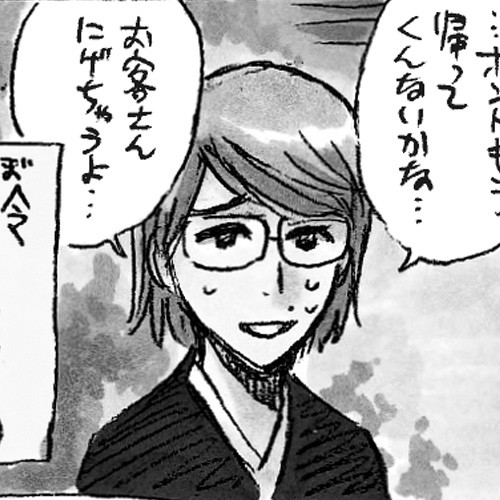 …ホントもう
帰って
くんないかな…
お客さん
にげちゃうよ…